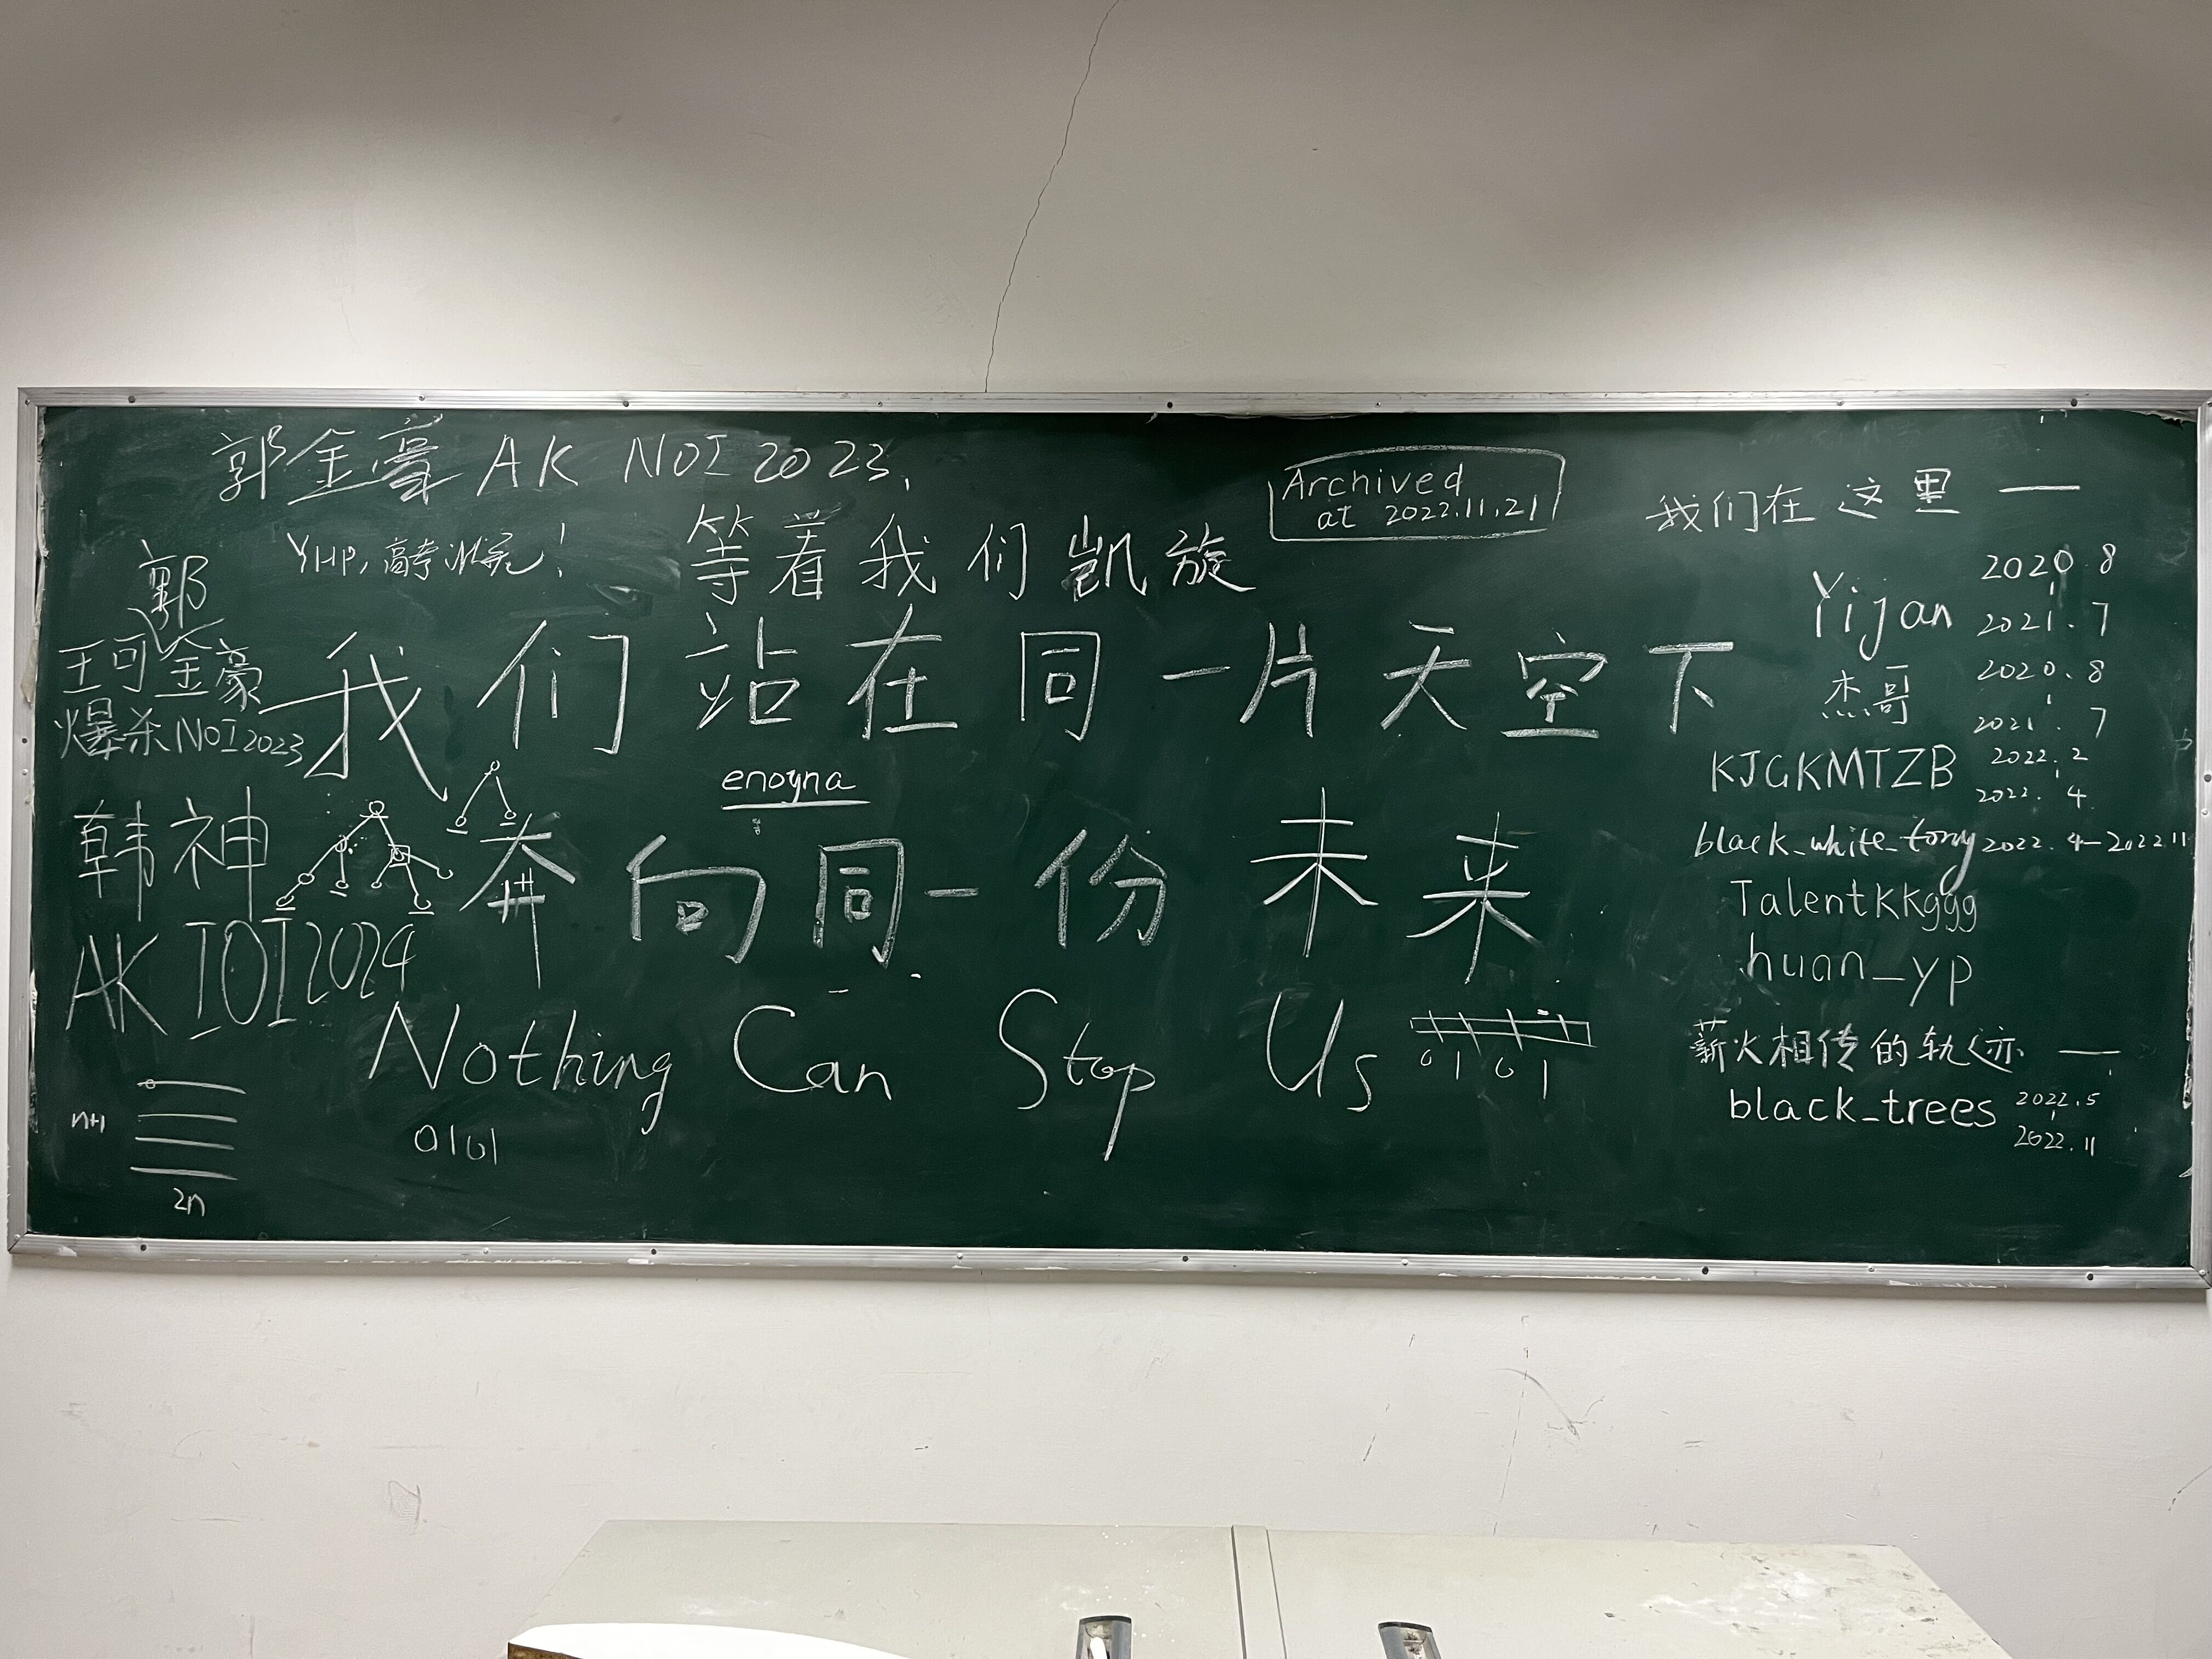 郭金豪 AK NOI 2023,
YHP,高考冲完!
等着我们凯旋
Archived
at 2022.11.21
郭
王可金豪
爆杀NOI2023
我们站在同一片天空下
enoyna
韩神
AK IOI 2024
奔向同一份未来
Nothing Can Stop Us
0 1 0 1
0101
n+1
2n
我们在这里 ——
Yijan 2020.8
2021.7
杰哥 2020.8
2021.7
KJGKMTZB 2022.2
2022.4
black_white_tony 2022.4-2022.11
TalentKKggg
huan_yp
薪火相传的轨迹 ——
black_trees 2022.5
2022.11